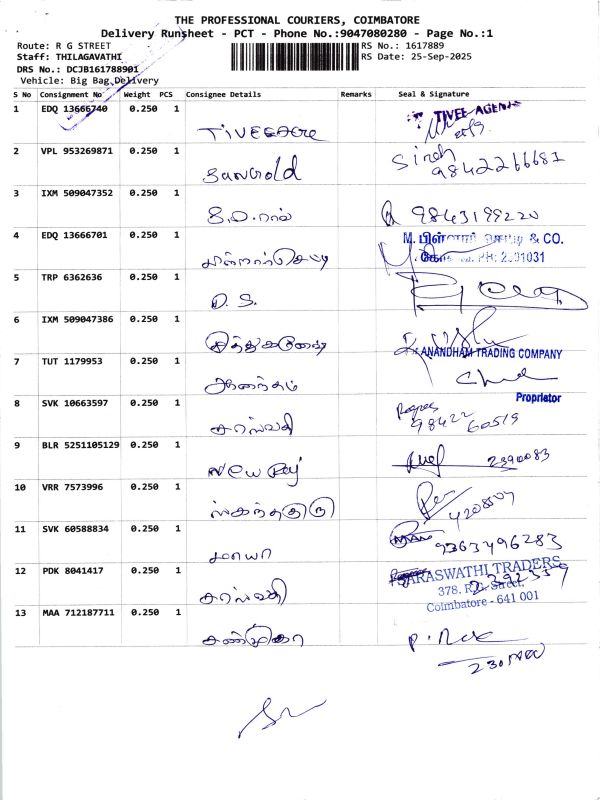 THE PROFESSIONAL COURIERS, COIMBATORE
Delivery Runsheet - PCT - Phone No.:9047080280 - Page No.:1
Route: R G STREET
RS No.: 1617889
Staff: THILAGAVATHI
RS Date: 25-Sep-2025
DRS No.: DCJB161788901
Vehicle: Big Bag Delivery
S No Consignment No Weight PCS Consignee Details Remarks Seal & Signature
1 EDQ 13666740 0.250 1 TIVEE AGENC
2 VPL 953269871 0.250 1 Sungold 9842266681
3 IXM 509047352 0.250 1 9843199220
4 EDQ 13666701 0.250 1 M. & CO.
5 TRP 6362636 0.250 1 D. S.
6 IXM 509047386 0.250 1
7 TUT 1179953 0.250 1 ஆனந்தம் ANANDHAM TRADING COMPANY
Proprietor
8 SVK 10663597 0.250 1 சரஸ்வதி 98422 60519
9 BLR 5251105129 0.250 1 2390083
10 VRR 7573996 0.250 1 ஸ்கந்தகுரு
11 SVK 60588834 0.250 1 மாயா 9363496283
12 PDK 8041417 0.250 1 சரஸ்வதி SARASWATHI TRADERS
378. R.G. Street,
Coimbatore - 641 001
13 MAA 712187711 0.250 1 சண்முகா